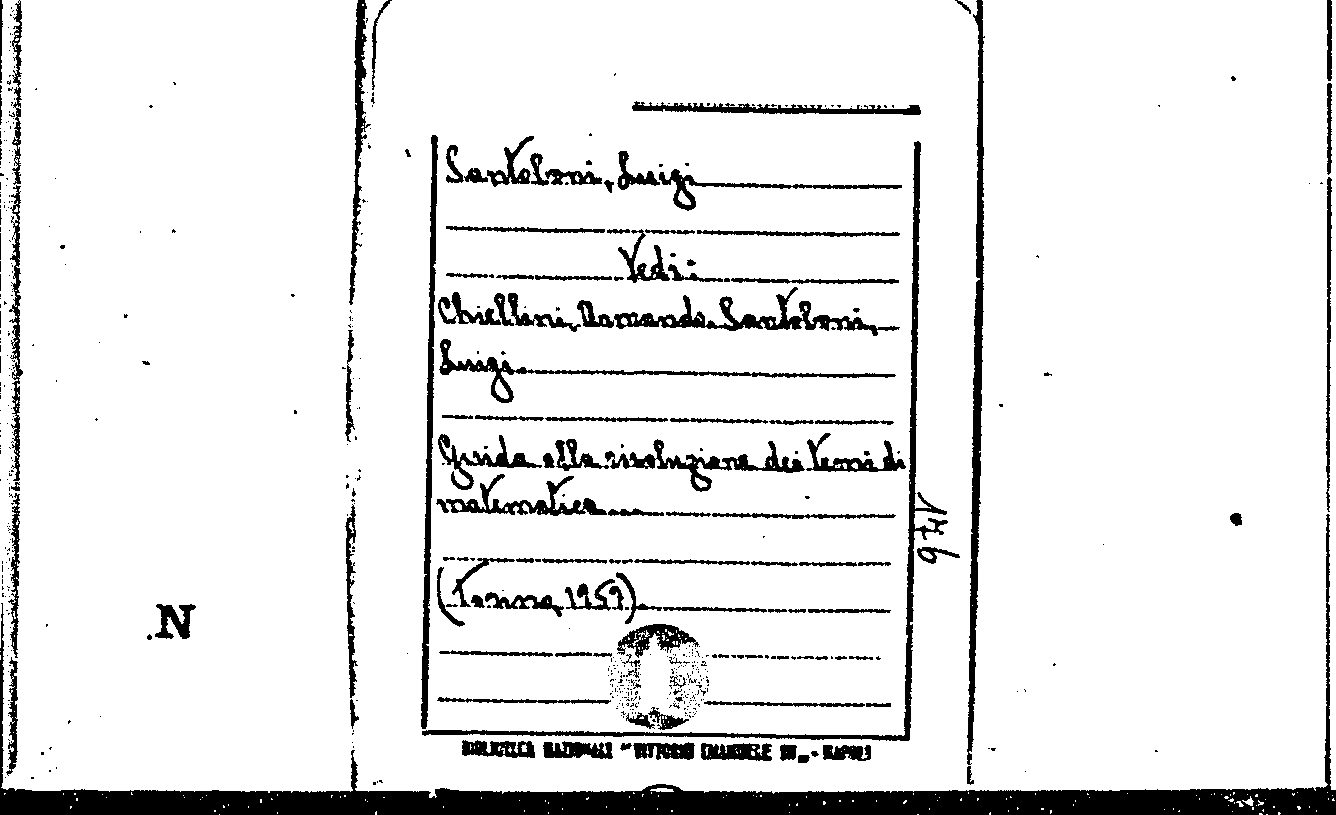 Santoboni, Luigi
Vedi:
Chiellini, Armando. Santoboni,
Luigi.
Guida alla risoluzione dei temi di
matematica...
(Torino, 1959).
N
BIBLIOTECA NAZIONALE "VITTORIO EMANUELE III„ - NAPOLI